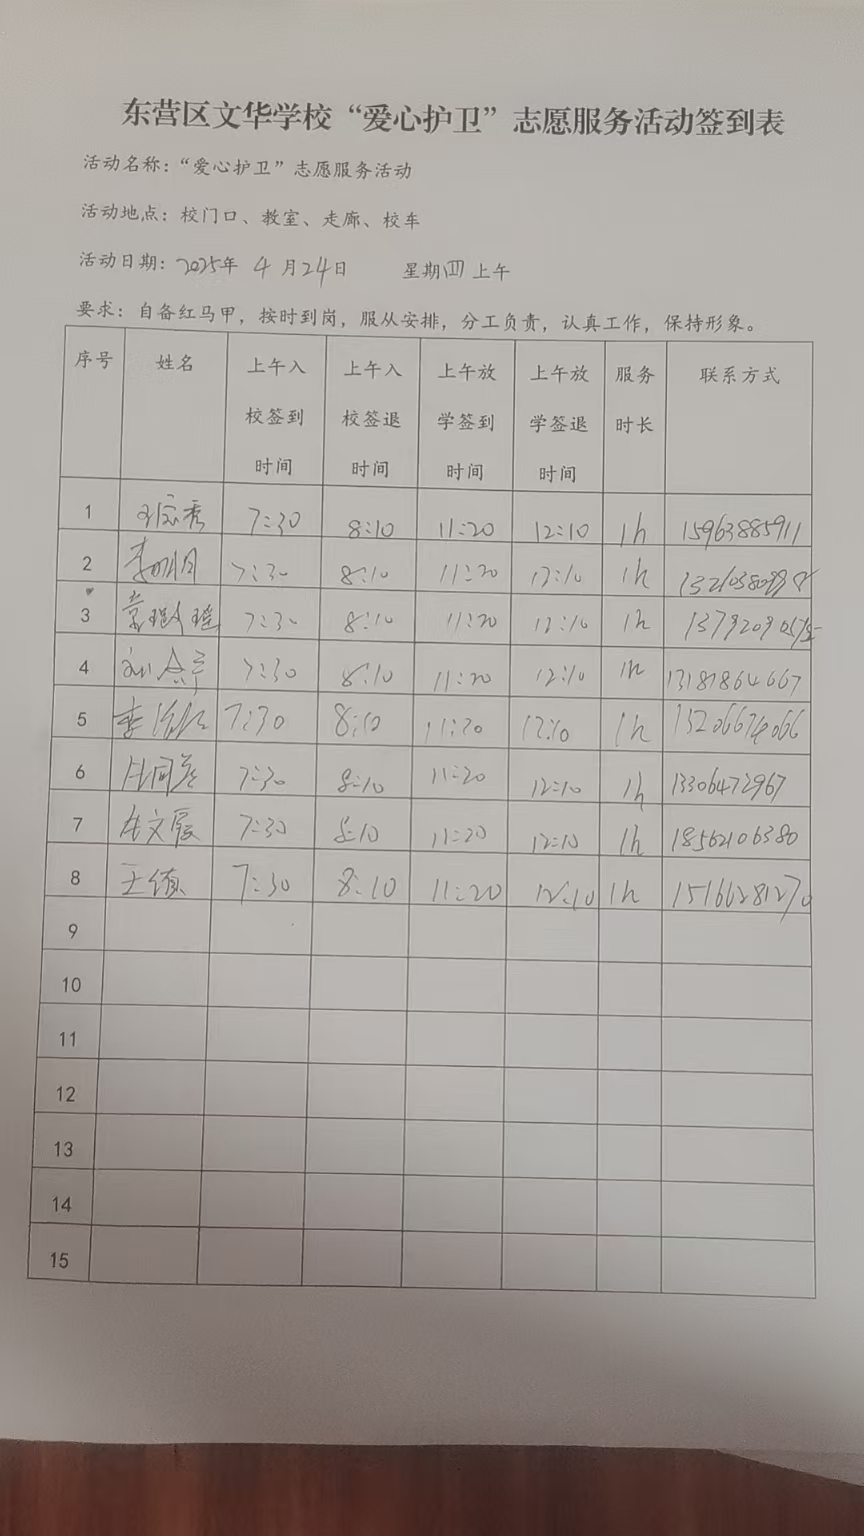 东营区文华学校“爱心护卫”志愿服务活动签到表
活动名称：“爱心护卫”志愿服务活动
活动地点：校门口、教室、走廊、校车
活动日期：2025年 4月24日 星期四 上午
要求：自备红马甲，按时到岗，服从安排，分工负责，认真工作，保持形象。
序号 姓名 上午入校签到时间 上午入校签退时间 上午放学签到时间 上午放学签退时间 服务时长 联系方式
1 7:30 8:10 11:20 12:10 1h 15963885911
2 李明月 7:30 8:10 11:20 12:10 1h
3 7:30 8:10 11:20 12:10 1h
4 7:30 8:10 11:20 12:10 1h 13181864667
5 7:30 8:10 11:20 12:10 1h
6 7:30 8:10 11:20 12:10 1h 13306472967
7 7:30 8:10 11:20 12:10 1h 18562106380
8 7:30 8:10 11:20 12:10 1h 15166281270
9
10
11
12
13
14
15